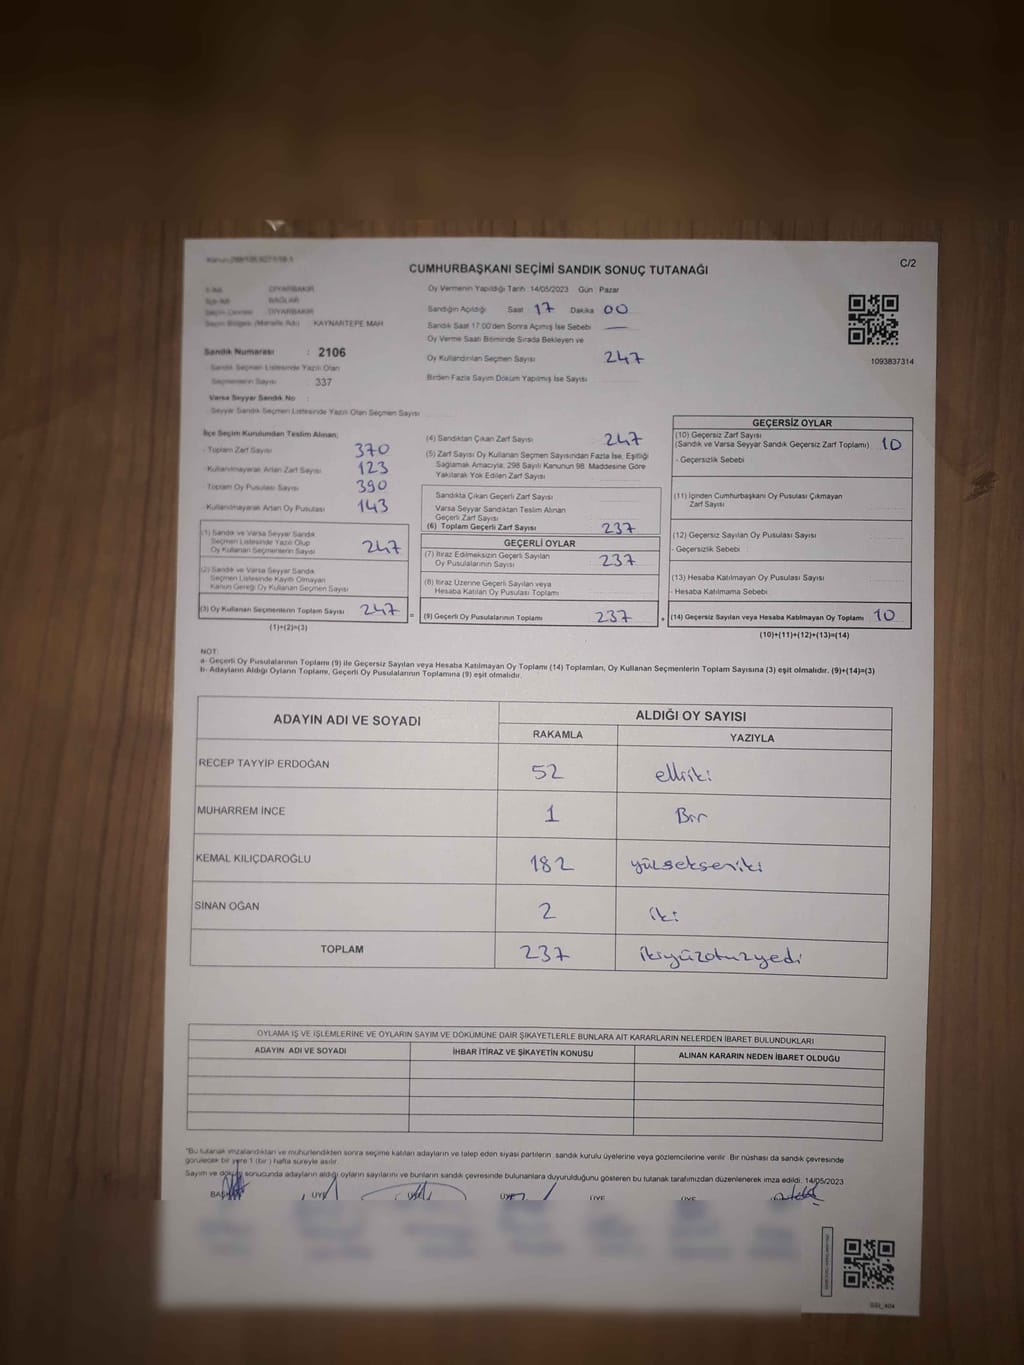 C/2
CUMHURBAŞKANI SEÇİMİ SANDIK SONUÇ TUTANAĞI
DİYARBAKIR
BAĞLAR
DİYARBAKIR
KAYNARTEPE MAH
Sandık Numarası : 2106
Sandık Seçmen Listesinde Yazılı Olan
Seçmenlerin Sayısı 337
Varsa Seyyar Sandık No :
Seyyar Sandık Seçmen Listesinde Yazılı Olan Seçmen Sayısı
Oy Vermenin Yapıldığı Tarih :14/05/2023 Gün Pazar
Sandığın Açıldığı Saat 17 Dakika 00
Sandık Saat 17:00'den Sonra Açılmış İse Sebebi —
Oy Verme Saati Bitiminde Sırada Bekleyen ve
Oy Kullandırılan Seçmen Sayısı 247
Birden Fazla Sayım Döküm Yapılmış İse Sayısı
1093837314
İlçe Seçim Kurulundan Teslim Alınan;
- Toplam Zarf Sayısı 370
- Kullanılmayarak Artan Zarf Sayısı 123
- Toplam Oy Pusulası Sayısı 390
- Kullanılmayarak Artan Oy Pusulası 143
(1) Sandık ve Varsa Seyyar Sandık
Seçmen Listesinde Yazılı Olup
Oy Kullanan Seçmenlerin Sayısı 247
(2) Sandık ve Varsa Seyyar Sandık
Seçmen Listesinde Kayıtlı Olmayan
Kanun Gereği Oy Kullanan Seçmen Sayısı
(3) Oy Kullanan Seçmenlerin Toplam Sayısı 247
(1)+(2)=(3)
(4) Sandıktan Çıkan Zarf Sayısı 247
(5) Zarf Sayısı Oy Kullanan Seçmen Sayısından Fazla İse, Eşitliği
Sağlamak Amacıyla; 298 Sayılı Kanunun 98. Maddesine Göre
Yakılarak Yok Edilen Zarf Sayısı
Sandıkta Çıkan Geçerli Zarf Sayısı
Varsa Seyyar Sandıktan Teslim Alınan
Geçerli Zarf Sayısı
(6) Toplam Geçerli Zarf Sayısı 237
GEÇERLİ OYLAR
(7) İtiraz Edilmeksizin Geçerli Sayılan
Oy Pusulalarının Sayısı 237
(8) İtiraz Üzerine Geçerli Sayılan veya
Hesaba Katılan Oy Pusulası Toplamı
= (9) Geçerli Oy Pusulalarının Toplamı 237 +
GEÇERSİZ OYLAR
(10) Geçersiz Zarf Sayısı
(Sandık ve Varsa Seyyar Sandık Geçersiz Zarf Toplamı) 10
- Geçersizlik Sebebi
(11) İçinden Cumhurbaşkanı Oy Pusulası Çıkmayan
Zarf Sayısı
(12) Geçersiz Sayılan Oy Pusulası Sayısı
- Geçersizlik Sebebi
(13) Hesaba Katılmayan Oy Pusulası Sayısı
- Hesaba Katılmama Sebebi
(14) Geçersiz Sayılan veya Hesaba Katılmayan Oy Toplamı 10
(10)+(11)+(12)+(13)=(14)
NOT:
a- Geçerli Oy Pusulalarının Toplamı (9) ile Geçersiz Sayılan veya Hesaba Katılmayan Oy Toplamı (14) Toplamları, Oy Kullanan Seçmenlerin Toplam Sayısına (3) eşit olmalıdır. (9)+(14)=(3)
b- Adayların Aldığı Oyların Toplamı, Geçerli Oy Pusulalarının Toplamına (9) eşit olmalıdır.
ADAYIN ADI VE SOYADI ALDIĞI OY SAYISI
RAKAMLA YAZIYLA
RECEP TAYYİP ERDOĞAN 52 elliiki
MUHARREM İNCE 1 Bir
KEMAL KILIÇDAROĞLU 182 yülsekseniki
SİNAN OĞAN 2 iki
TOPLAM 237 ikiyüzotuzyedi
OYLAMA İŞ VE İŞLEMLERİNE VE OYLARIN SAYIM VE DÖKÜMÜNE DAİR ŞİKAYETLERLE BUNLARA AİT KARARLARIN NELERDEN İBARET BULUNDUKLARI
ADAYIN ADI VE SOYADI İHBAR İTİRAZ VE ŞİKAYETİN KONUSU ALINAN KARARIN NEDEN İBARET OLDUĞU
*Bu tutanak imzalandıktan ve mühürlendikten sonra seçime katılan adayların ve talep eden siyasi partilerin sandık kurulu üyelerine veya gözlemcilerine verilir. Bir nüshası da sandık çevresinde
görülecek bir yere 1 (bir) hafta süreyle asılır.
Sayım ve döküm sonucunda adayların aldığı oyların sayılarını ve bunların sandık çevresinde bulunanlara duyurulduğunu gösteren bu tutanak tarafımızdan düzenlenerek imza edildi. 14/05/2023
ÜYE ÜYE ÜYE ÜYE